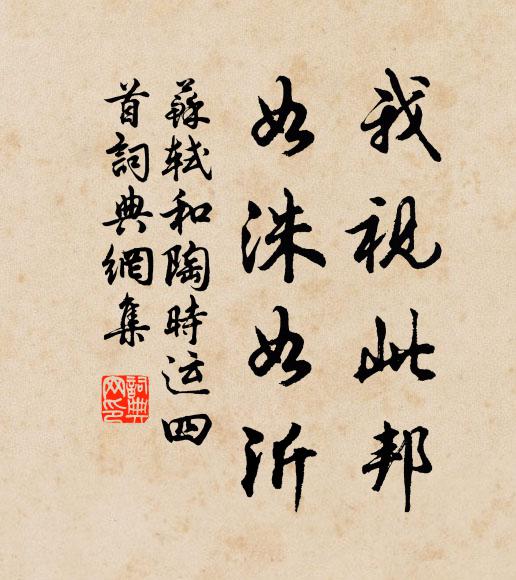 我視此邦
如洙如沂
蘇軾和陶時运四
首詞典網集
詞典
网印